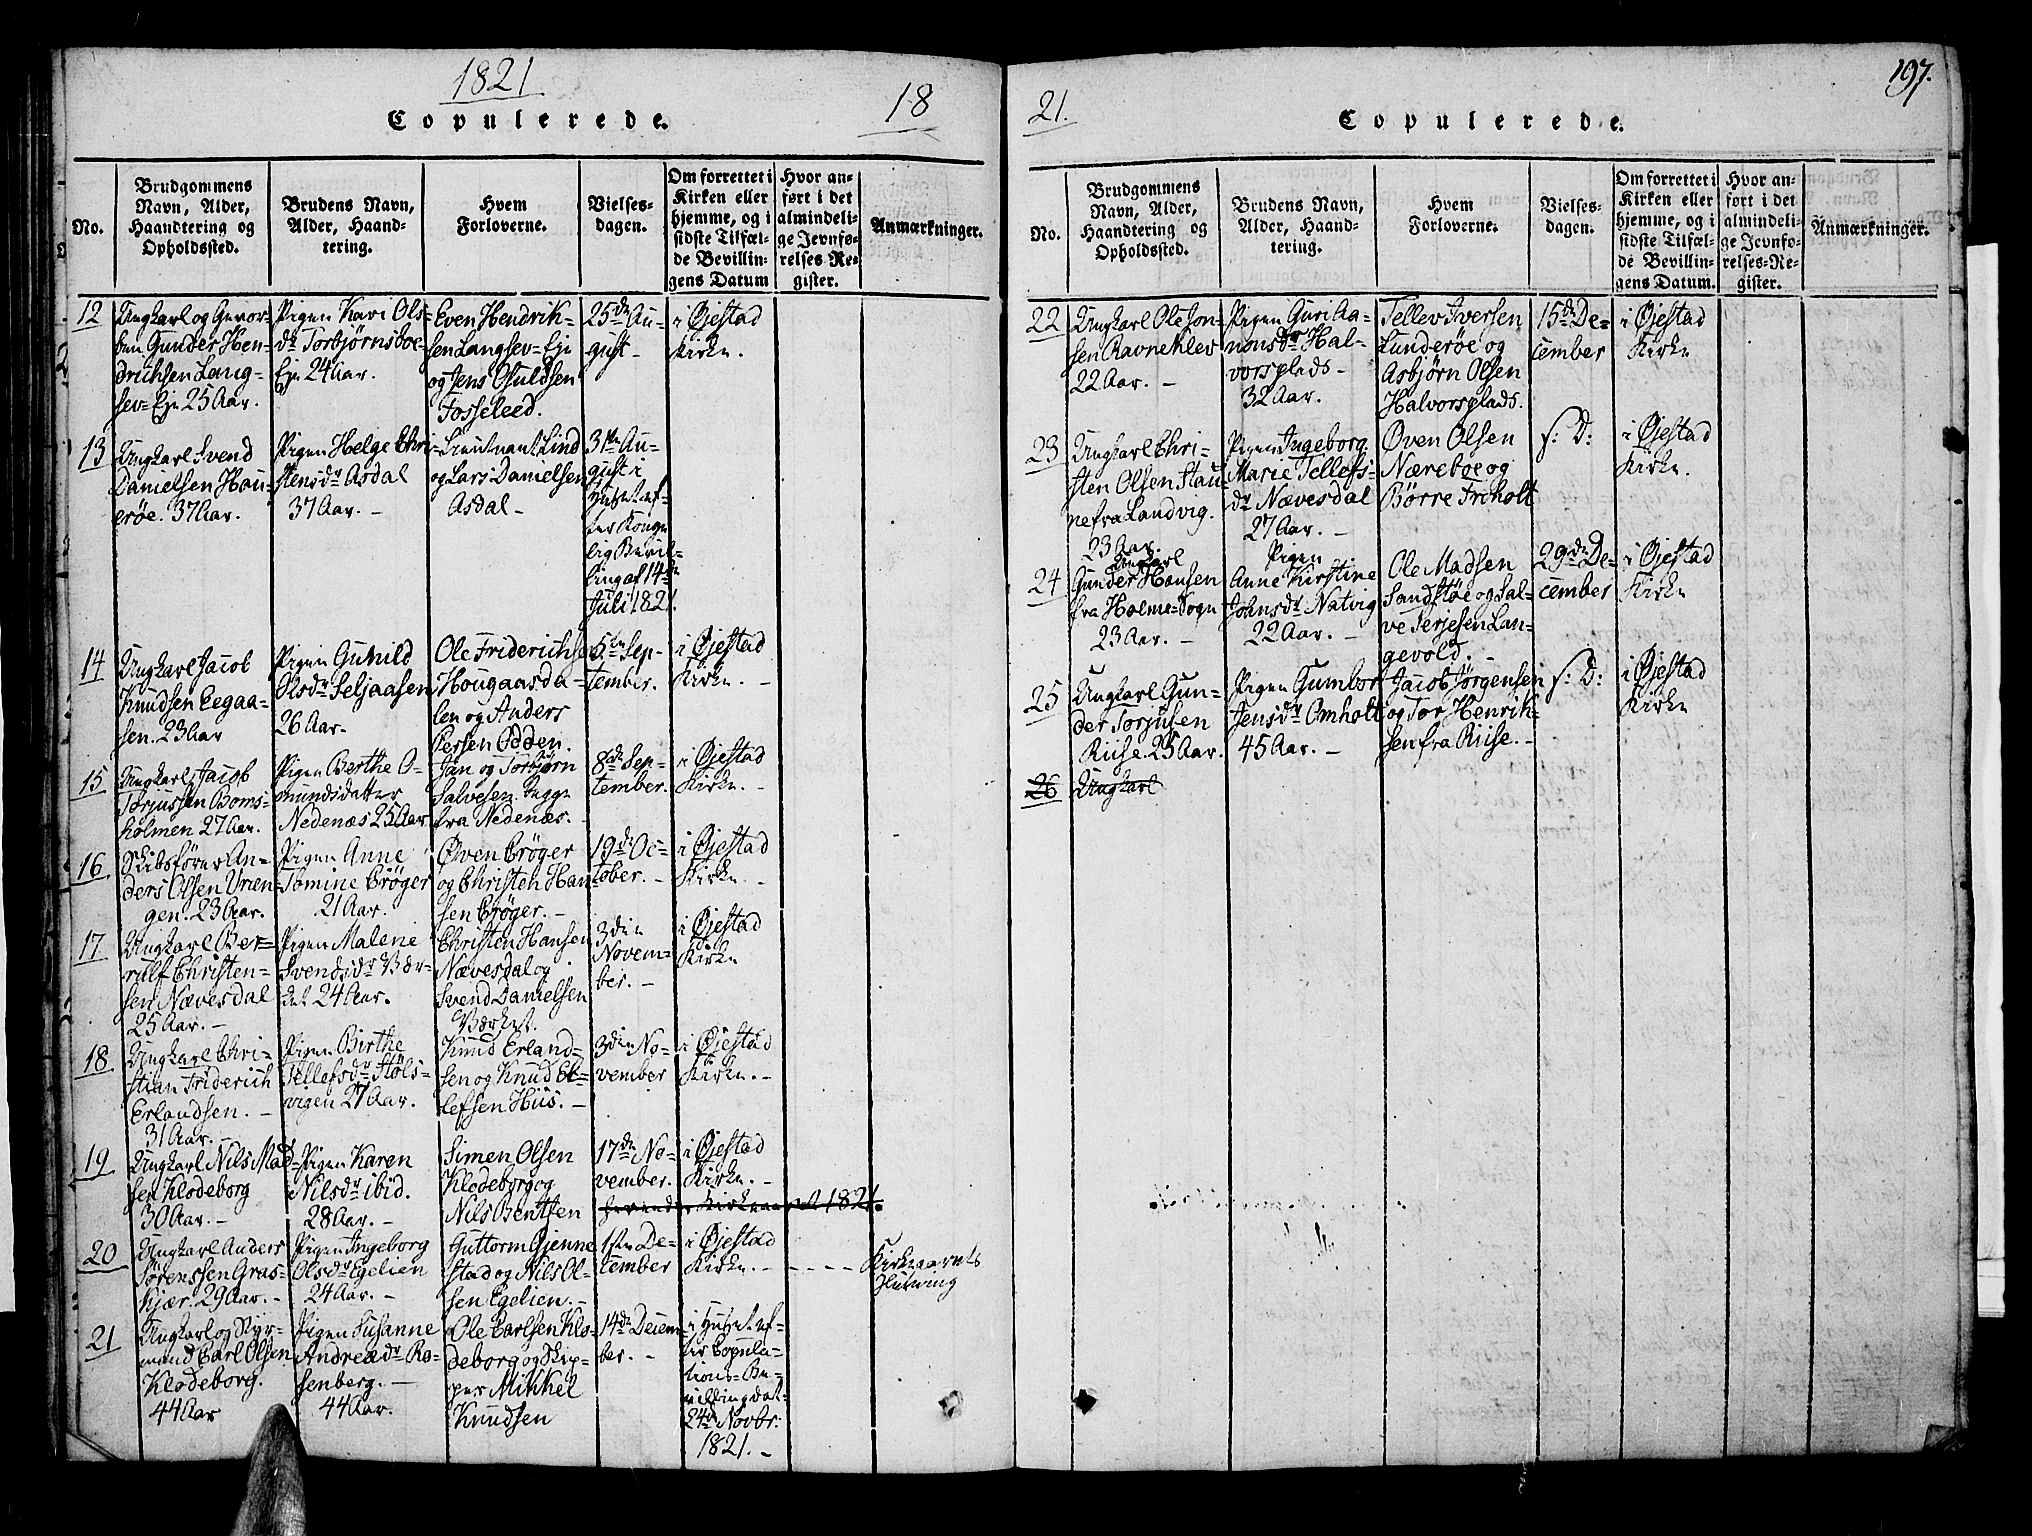 1821
Copulerede.
18
No.
Brudgommens
Navn, Alder,
Haandtering og
Opholdssted.
Brudens Navn,
Alder, Haand-
tering.
Hvem
Forloverne.
Vielses-
dagen.
Om forrettet i
Kirken eller
hjemme, og i
sidste Tilfæl-
de Bevillin-
gens Datum
Hvor an-
ført i det
almindeli-
ge Jevnfø-
relses-Re-
gister.
Anmærkninger.
12
Ungkarl og Gevor-
ben Gunder Hen-
drichsen Lang-
sev-Eje 25 Aar.
Pigen Kari Ols-
dr Torbjørnsboe-
Eje 24 Aar.
Even Hendrik-
sen Langsev-Eje
og Jens Osuldsen
Fosseleed.
25de Au-
gust
i Øjestad
Kirke.
13
Ungkarl Svend
Danielsen Hau-
erøe. 37 Aar.
Pigen Helge Chri-
stensdr Asdal
37 Aar. -
Lieutnant Lind
og Lars Danielsen
Asdal -
31te Au-
gust i
Huset ef-
ter Konge-
lig Bevil-
ling af 14de
Juli 1821.
14
Ungkarl Jacob
Knudsen Eegaa-
sen. 23 Aar
Pigen Guhild
Olsdr Seljaasen
26 Aar.
Ole Friderichsen
Hougaasda-
len og Anders
Persen Odden.
5te Sep-
tember.
i Øjestad
Kirke. -
15
Ungkarl Jacob
Torjussen Boms-
holmen 27 Aar.
Pigen Berthe O-
smundsdatter
Nedenæs 25 Aar
Jan og Torbjørn
Salvesen begge
fra Nedenæs. -
8de Sep-
tember.
i Øjestad
Kirke. -
16
Skibsfører An-
ders Olsen Vren-
gen. 23 Aar.
Pigen Anne
Tomine Crøger
21 Aar.
Øven Crøger
og Christen Han-
sen Crøger. -
19de Oc-
tober. -
i Øjestad
Kirke. -
17
Ungkarl Ber-
rulf Christen-
sen Nævesdal
25 Aar. -
Pigen Malene
Svendsdr Vær-
ket 24 Aar.
Christen Hansen
Nævesdal og
Svend Danielsen
Værket.
3die
Novem-
ber. -
i Øjestad
Kirke
18
Ungkarl Chri-
stian Friderich
Erlandsen. -
31 Aar. -
Pigen Birthe
Tellefsdr Støls-
vigen 27 Aar.
Knud Erland-
sen og Knud El-
lefsen Hiis. -
3die No-
vember
i Øjestad
Kirke. -
19
Ungkarl Nils Mad-
sen Klodeborg
30 Aar. -
Pigen Karen
Nilsdr ibid.
28 Aar. -
Simen Olsen
Klodeborg og
Nils Bentsen
17de No-
vember.
i Øjestad
Kirke. -
1821.
20
Ungkarl Anders
Sørenssen Gras-
kjær. 29 Aar. -
Pigen Ingeborg
Olsdr Egelien
24 Aar. -
Guttorm Gjenne-
stad og Nils Ol-
sen Egelien. -
1ste De-
cember
i Øjestad
Kirke. -
Kirkeaarets
Slutning
21
Ungkarl og Styr-
mand Carl Olsen
Klodeborg.
44 Aar
Pigen Susanne
Andreædr Ro-
senberg. -
44 Aar.
Ole Carlsen Klo-
deborg og Skip-
per Mikkel
Knudsen
14de Decem-
ber. -
i Huset ef-
ter Copula-
tions-Be-
villing dat.
24de Novbr.
1821. -
21.
Copulerede.
197.
No.
Brudgommens
Navn, Alder,
Haandtering og
Opholdssted.
Brudens Navn,
Alder, Haand-
tering.
Hvem
Forloverne.
Vielses-
dagen.
Om forrettet i
Kirken eller
hjemme, og i
sidste Tilfæl-
de Bevillin-
gens Datum.
Hvor an-
ført i det
almindeli-
ge Jevnfø-
relses-Re-
gister.
Anmærkninger.
22
Ungkarl Ole Jon-
sen Ravneklev
22 Aar. -
Pigen Guri Aa-
nonsdr Hal-
vorsplads -
32 Aar.
Tellev Iversen
Lunderøe og
Asbjørn Olsen
Halvorsplads.
15de De-
cember
i Øjestad
Kirke
23
Ungkarl Chri-
sten Olsen Stau-
ne fra Landvig.
23 Aar.
Pigen Ingeborg
Marie Tellefs-
dr Nævesdal
27 Aar. -
Øven Olsen
Næreboe og
Børre Froholt
s: D:
i Øjestad
Kirke.
24
Ungkarl
Gunder Hansen
fra Holme-Sogn
23 Aar. -
Pigen
Anne Kirstine
Johnsdr Natvig
22 Aar. -
Ole Madsen
Sandstøe og Sal-
ve Terjesen Lan-
gevold. -
29de De-
cember
i Øjestad
Kirke
25
Ungkarl Gun-
der Torjusen
Riise. 25 Aar.
Pigen Gumbor
Jensdr Omholt
45 Aar. -
Jacob Jørgensen
og Tor Henrik-
sen fra Riise. -
s: D:
i Øjestad
Kirke
26
Ungkarl